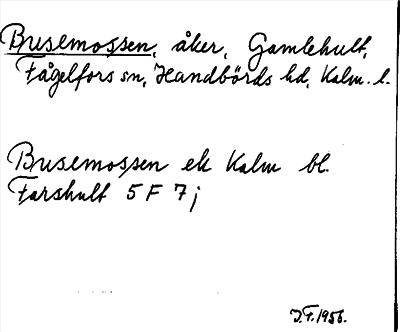 Busemossen, åker, Gamlehult,
Fågelfors sn, Handbörds hd, Kalm. l.
Busemossen ek Kalm bl.
Farshult 5 F 7 j
J.F. 1956.